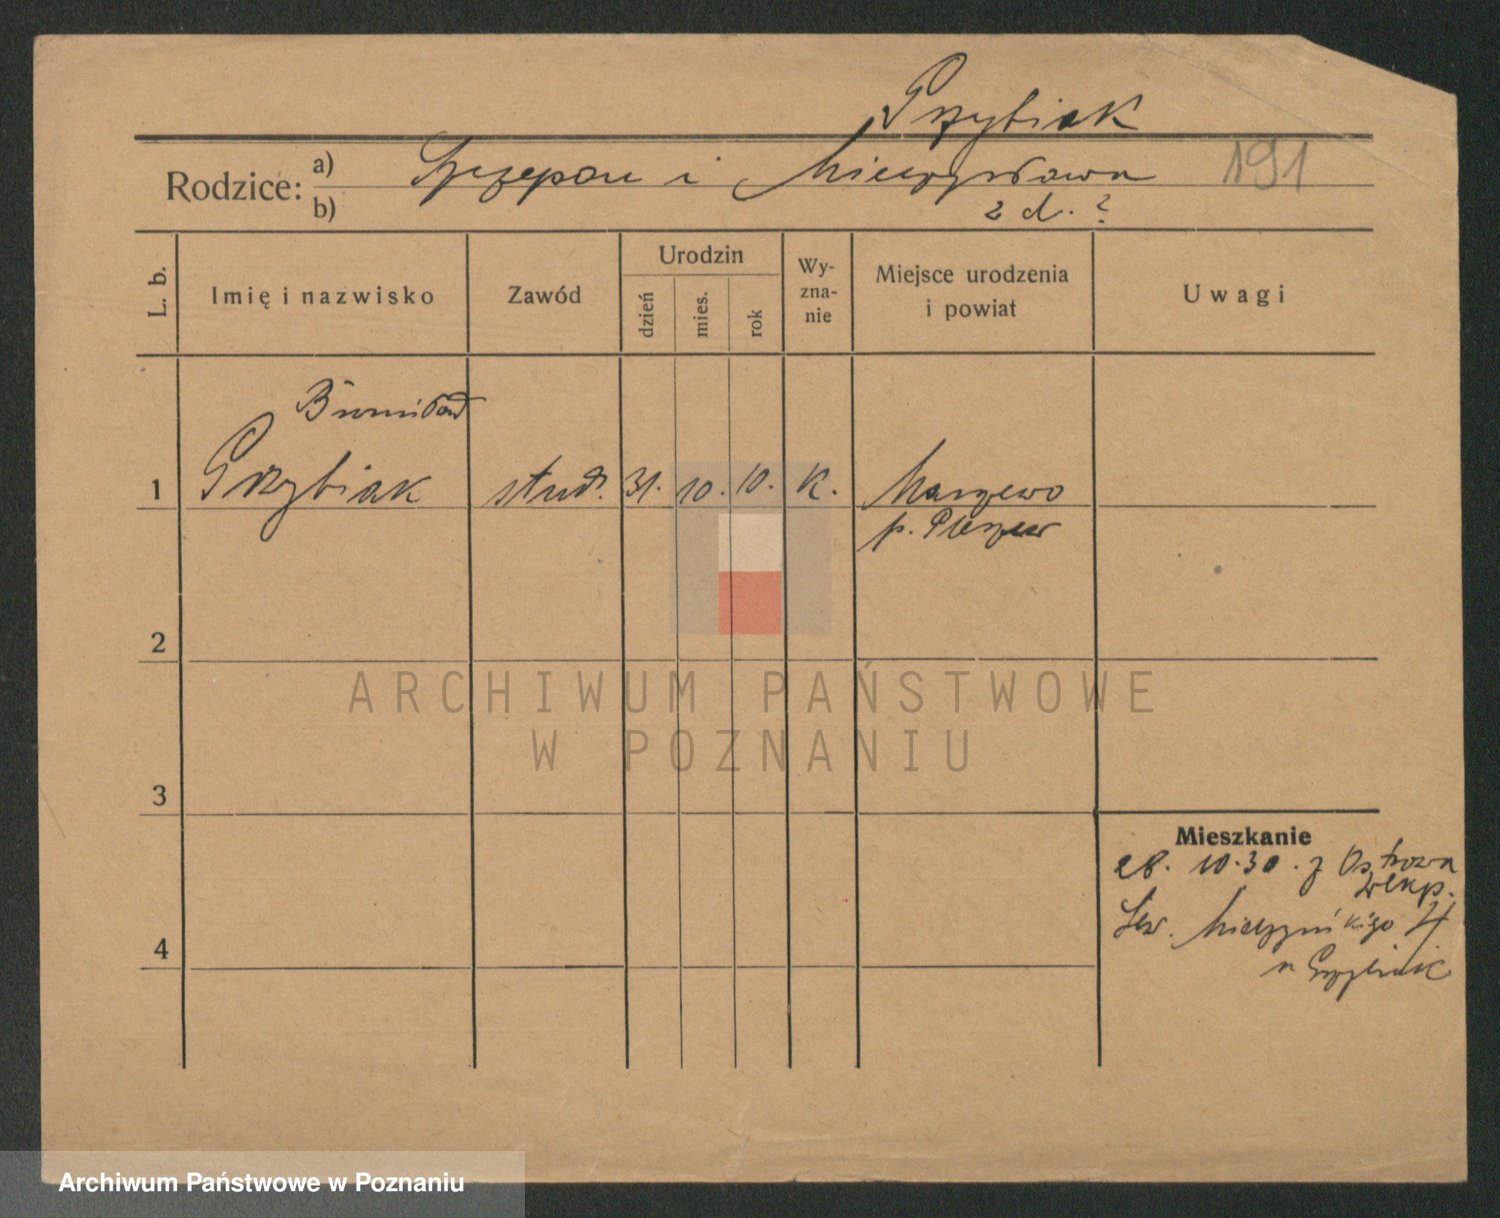 Przybiak
191
Rodzice: a) Szczepan i Mieczysława
b) z d. ?
L. b.
Imię i nazwisko
Zawód
Urodzin
dzień
mies.
rok
Wy-
zna-
nie
Miejsce urodzenia
i powiat
Uwagi
Bronisław
1 Przybiak stud. 31. 10. 10. K. Marszewo
p. Pleszew
2
ARCHIWUM PAŃSTWOWE
W POZNANIU
3
Mieszkanie
28. 10.30. z Ostrowa
Wlkp.
4
Archiwum Państwowe w Poznaniu